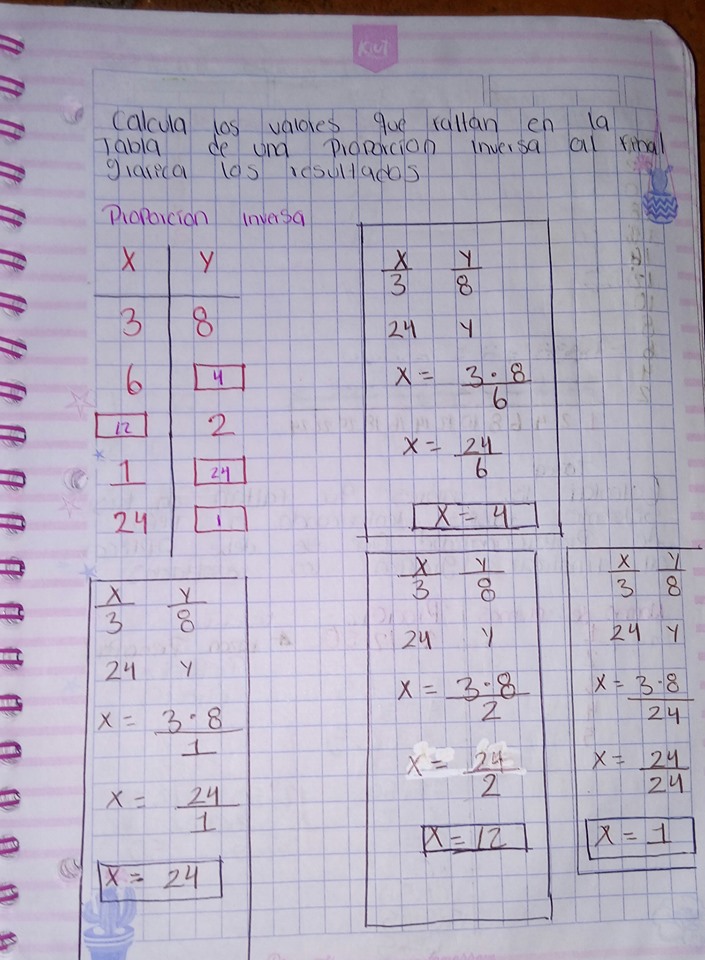 KIUT
Calcula los valores que faltan en la
Tabla de una Proporcion inversa al final
grafica los resultados
Proporcion inversa
X Y
3 8
6 4
12 2
1 24
24 1
X Y
3 8
24 Y
X = 3 · 8
6
X = 24
6
X = 4
X Y
3 8
24 Y
X = 3 · 8
1
X = 24
1
X = 24
X Y
3 8
24 Y
X = 3 · 8
2
X = 24
2
X = 12
X Y
3 8
24 Y
X = 3 · 8
24
X = 24
24
X = 1